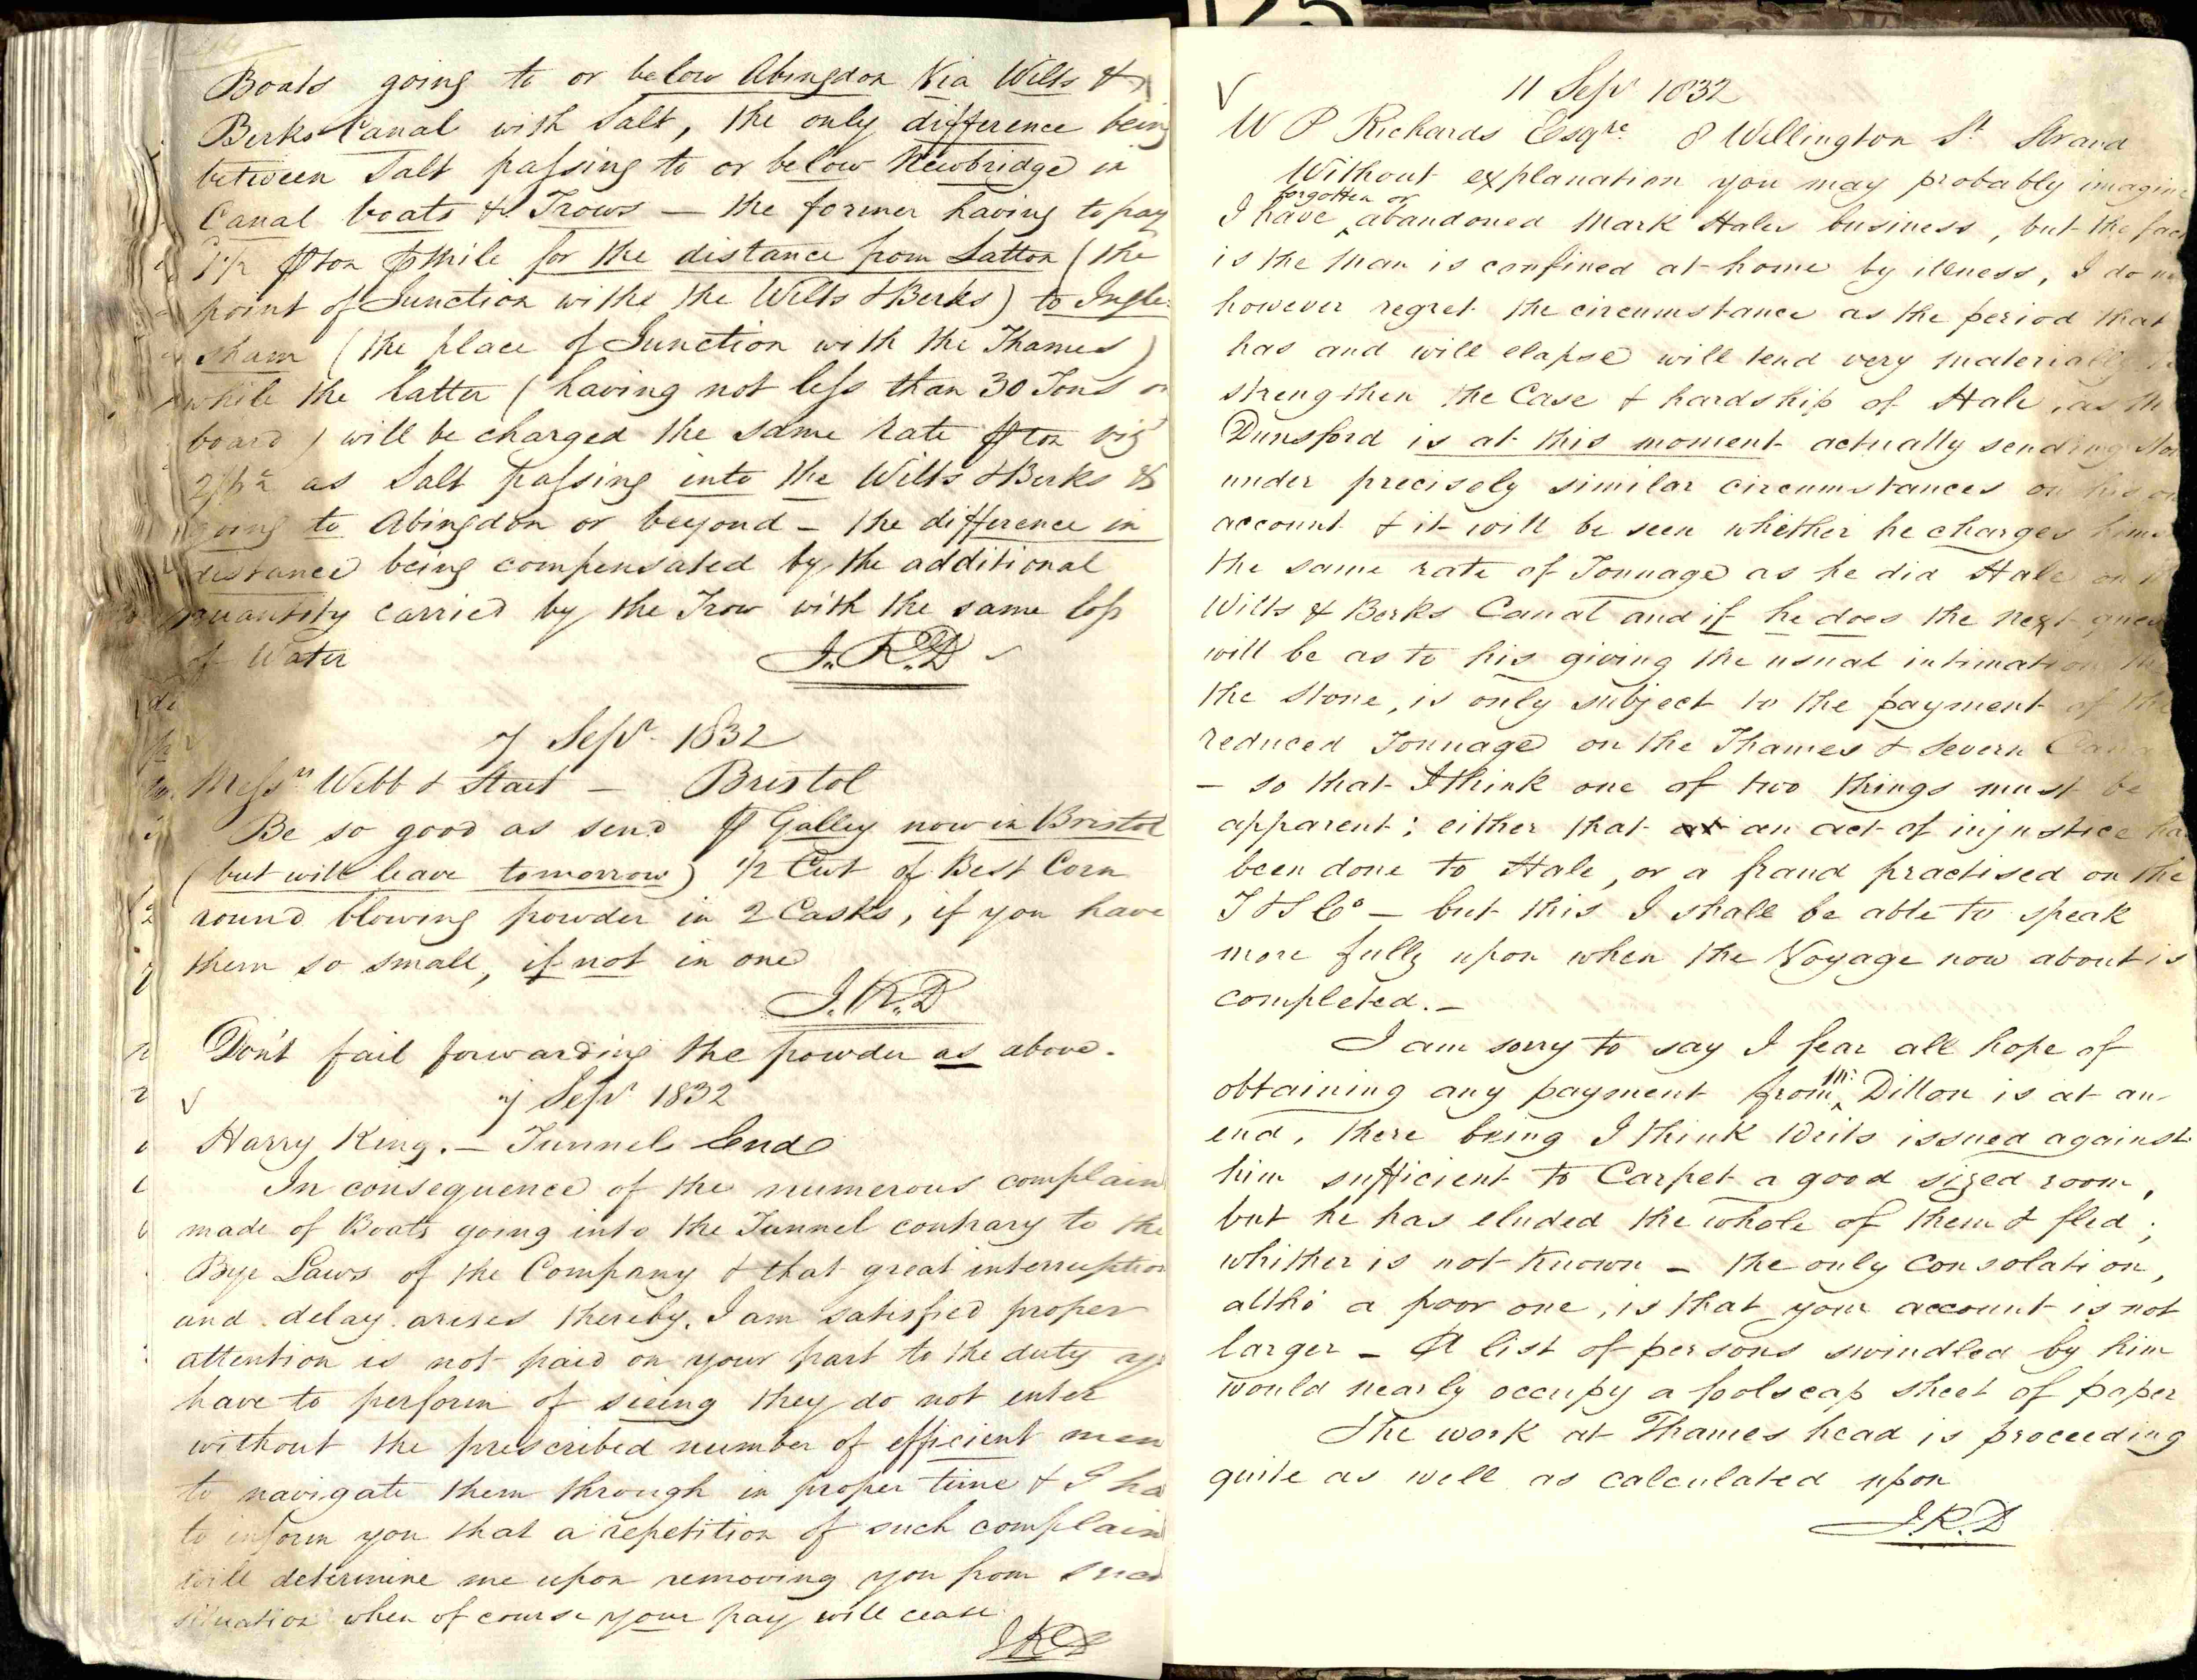 Boats going to or below Abingdon Via Wilts &
Berks Canal with Salt, the only difference being
between Salt passing to or below Newbridge in
Canal boats & Trows — the former having to pay
₱ ton ₱ Mile for the distance from Latton (the
point of Junction withe the Wilts & Berks) to Ingle-
sham (the place of Junction with the Thames)
while the latter (having not less than 30 Tons on
board) will be charged the same Rate ₱ ton viz
as Salt passing into the Wilts & Berks &
going to Abingdon or beyond — the difference in
distance being compensated by the additional
quantity carried by the Trow with the same loss
of Water
J.R.D
7 Sepr. 1832
Messrs Webb & Start — Bristol
Be so good as send ₱ Galley now in Bristol
(but will leave tomorrow) 1/2 Cwt of Best Corn
round blowing powder in 2 Casks, if you have
them so small, if not in one
J.R.D
Don't fail forwarding the powder as above.
7 Sepr 1832
Harry King. — Tunnel End
In consequence of the numerous complain
made of Boats going into the Tunnel contrary to the
Bye Laws of the Company & that great interruption
and delay arises thereby, I am satisfied proper
attention is not paid on your part to the duty
have to perform of seeing they do not enter
without the prescribed number of efficient men
to navigate them through in proper time & I ha
to inform you that a repetition of such complain
will determine me upon removing you from
situation when of course your pay will cease
JRD
125
√ 11 Sepr 1832
W P Richards Esqre 8 Wellington St Strand
Without explanation you may probably imagine
I have forgotten or abandoned Mark Hales business, but the fact
is the Man is confined at home by illness, I do
however regret the circumstance as the period that
has and will elapse will tend very materially
strengthen the Case & hardship of Hale, as
Dunsford is at this moment actually sending
under precisely similar circumstances on his
account & it will be seen whether he charges
the same rate of Tonnage as he did Hale on
Wilts & Berks Canal and if he does the next
will be as to his giving the usual intimation
the Stone, is only subject to the payment of the
reduced Tonnage on the Thames & Severn Cana
— so that I think one of two things must be
apparent; either that an act of injustice ha
been done to Hale, or a fraud practised on the
T & S Co — but this I shall be able to speak
more fully upon when the Voyage now about is
completed. —
I am sorry to say I fear all hope of
obtaining any payment from Mr. Dillon is at an
end, there being I think Writs issued against
him sufficient to Carpet a good sized room,
but he has eluded the whole of them & fled;
whither is not known — the only consolation,
altho' a poor one, is that your account is not
larger — A list of persons swindled by him
would nearly occupy a foolscap sheet of paper
The work at Thames head is proceeding
quite as well as calculated upon
J.R.D